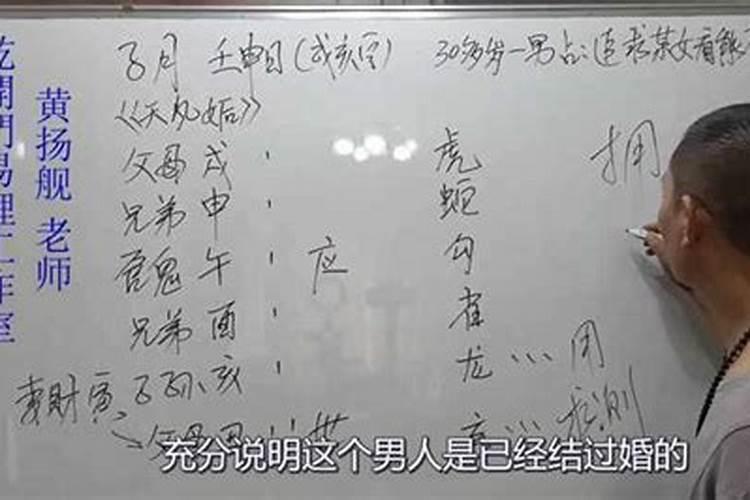 乾開門易理工作室
黄扬舰 老师
子月 壬申日(戌亥空) 30多岁一男占:追求某女看能
《天风姤》
父母戌、 虎
兄弟申、 蛇
官鬼午、应 勾
兄弟酉、 雀
妻財寅 子孙亥、 龙…用
父母丑〃世 玄…
拥
充分说明这个男人是已经结过婚的